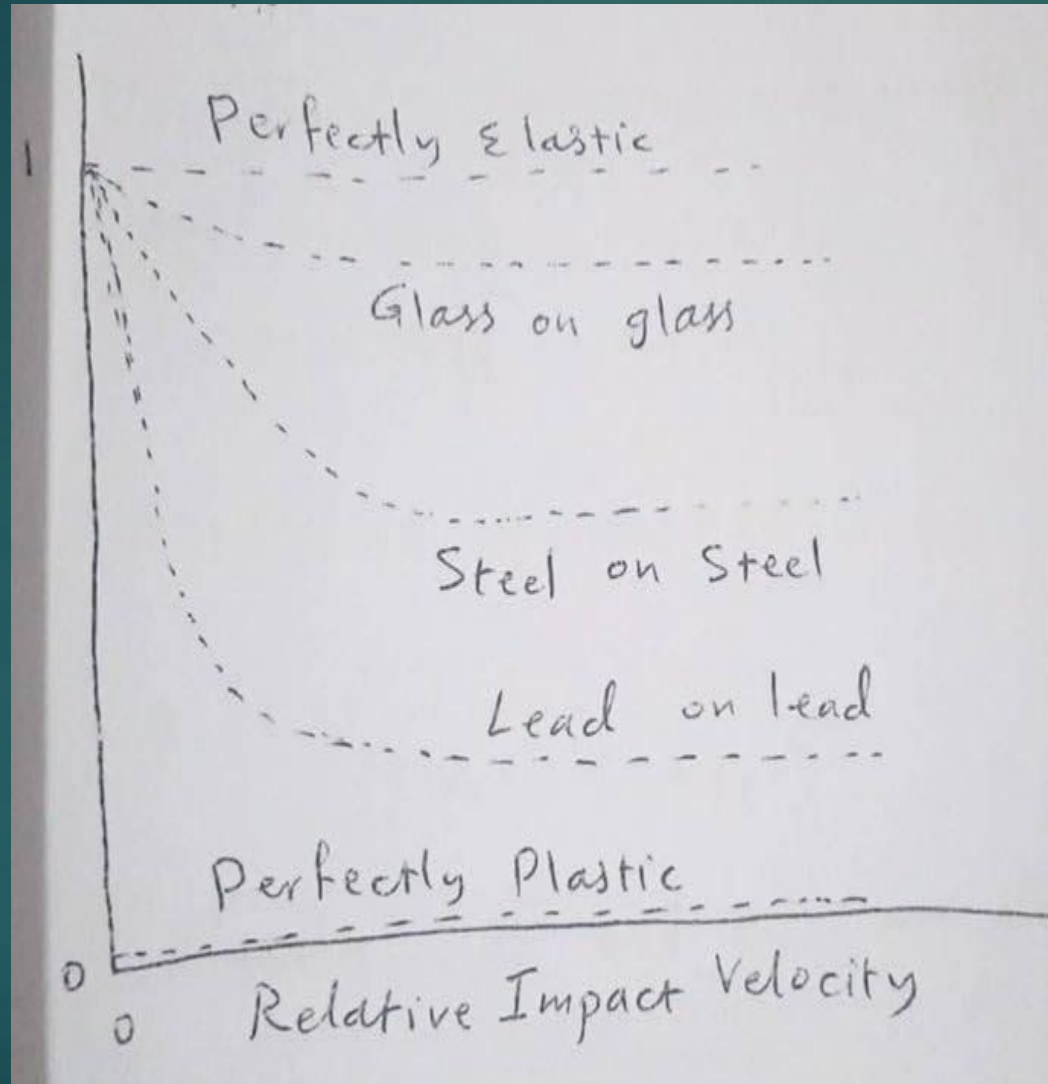 1
Perfectly Elastic
Glass on glass
Steel on Steel
Lead on lead
Perfectly Plastic
0
0
Relative Impact Velocity